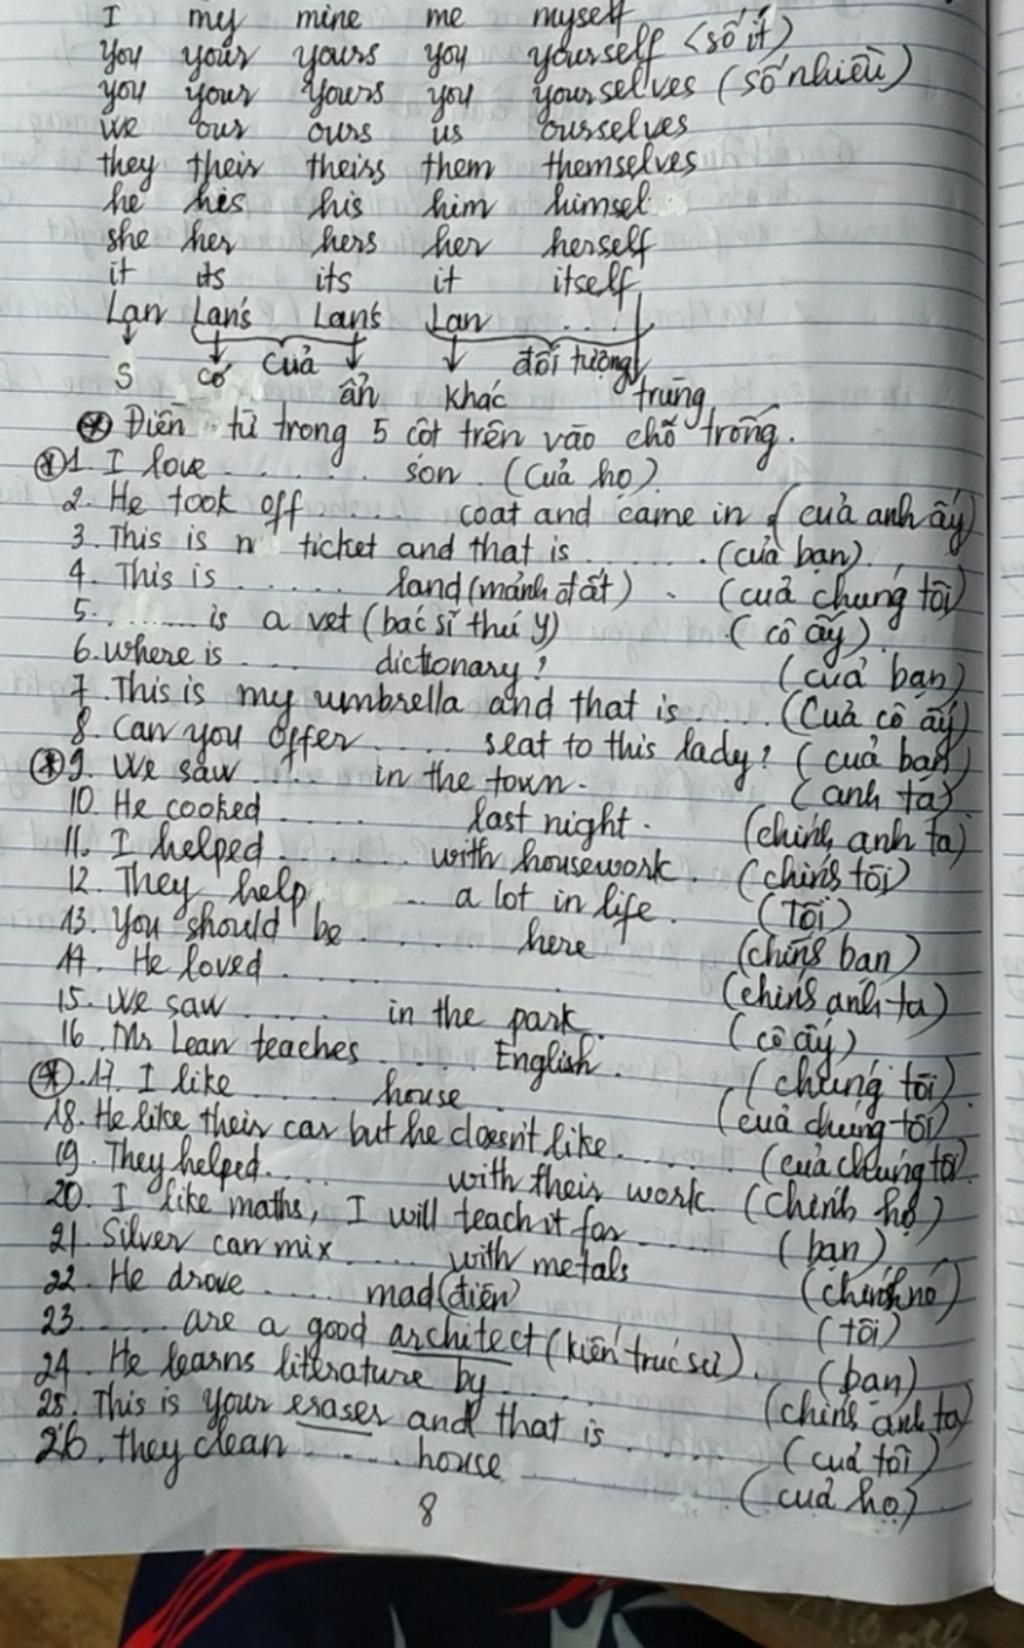 I my mine me myself
you your yours you yourself (số ít)
you your yours you yourselves (số nhiều)
we our ours us ourselves
they their theirs them themselves
he his his him himsel
she her hers her herself
it its its it itself
Lan Lan's Lan's Lan ....
S có của ẩn khác đối tượng trùng
Điền từ trong 5 cột trên vào chỗ trống.
1. I love ........ son. (Của họ)
2. He took off ...... coat and came in (của anh ấy)
3. This is ticket and that is ........ (của bạn).
4. This is ........ land (mảnh đất). (của chúng tôi)
5. ........ is a vet (bác sĩ thú y) (cô ấy)
6. Where is ...... dictionary? (của bạn)
7. This is my umbrella and that is ..... (Của cô ấy)
8. Can you offer ...... seat to this lady? (của bạn)
9. We saw ...... in the town. (anh ta)
10. He cooked ...... last night. (chính anh ta)
11. I helped ........ with housework. (chính tôi)
12. They help ...... a lot in life. (Tôi)
13. You should be ...... here (chính bạn)
14. He loved ........ (chính anh ta)
15. We saw ...... in the park. (cô ấy)
16. Mr Lean teaches ...... English. (chúng tôi)
17. I like ...... house (của chúng tôi)
18. He like their car but he doesn't like ........ (của chúng tôi)
19. They helped ...... with their work. (chính họ)
20. I like maths, I will teach it for ........ (bạn)
21. Silver can mix ...... with metals (chính nó)
22. He drove ...... mad (điên) (tôi)
23. ...... are a good architect (kiến trúc sư). (bạn)
24. He learns literature by ...... (chính anh ta)
25. This is your eraser and that is ...... (của tôi)
26. They clean ...... house (của họ)
8